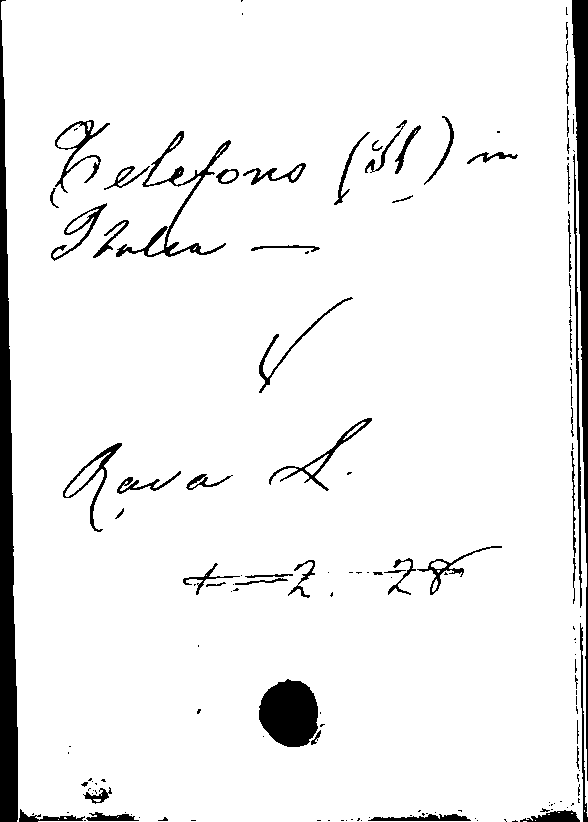 Telefono (Il) in
Italia —
V
Rava L.
t. = 2. 28